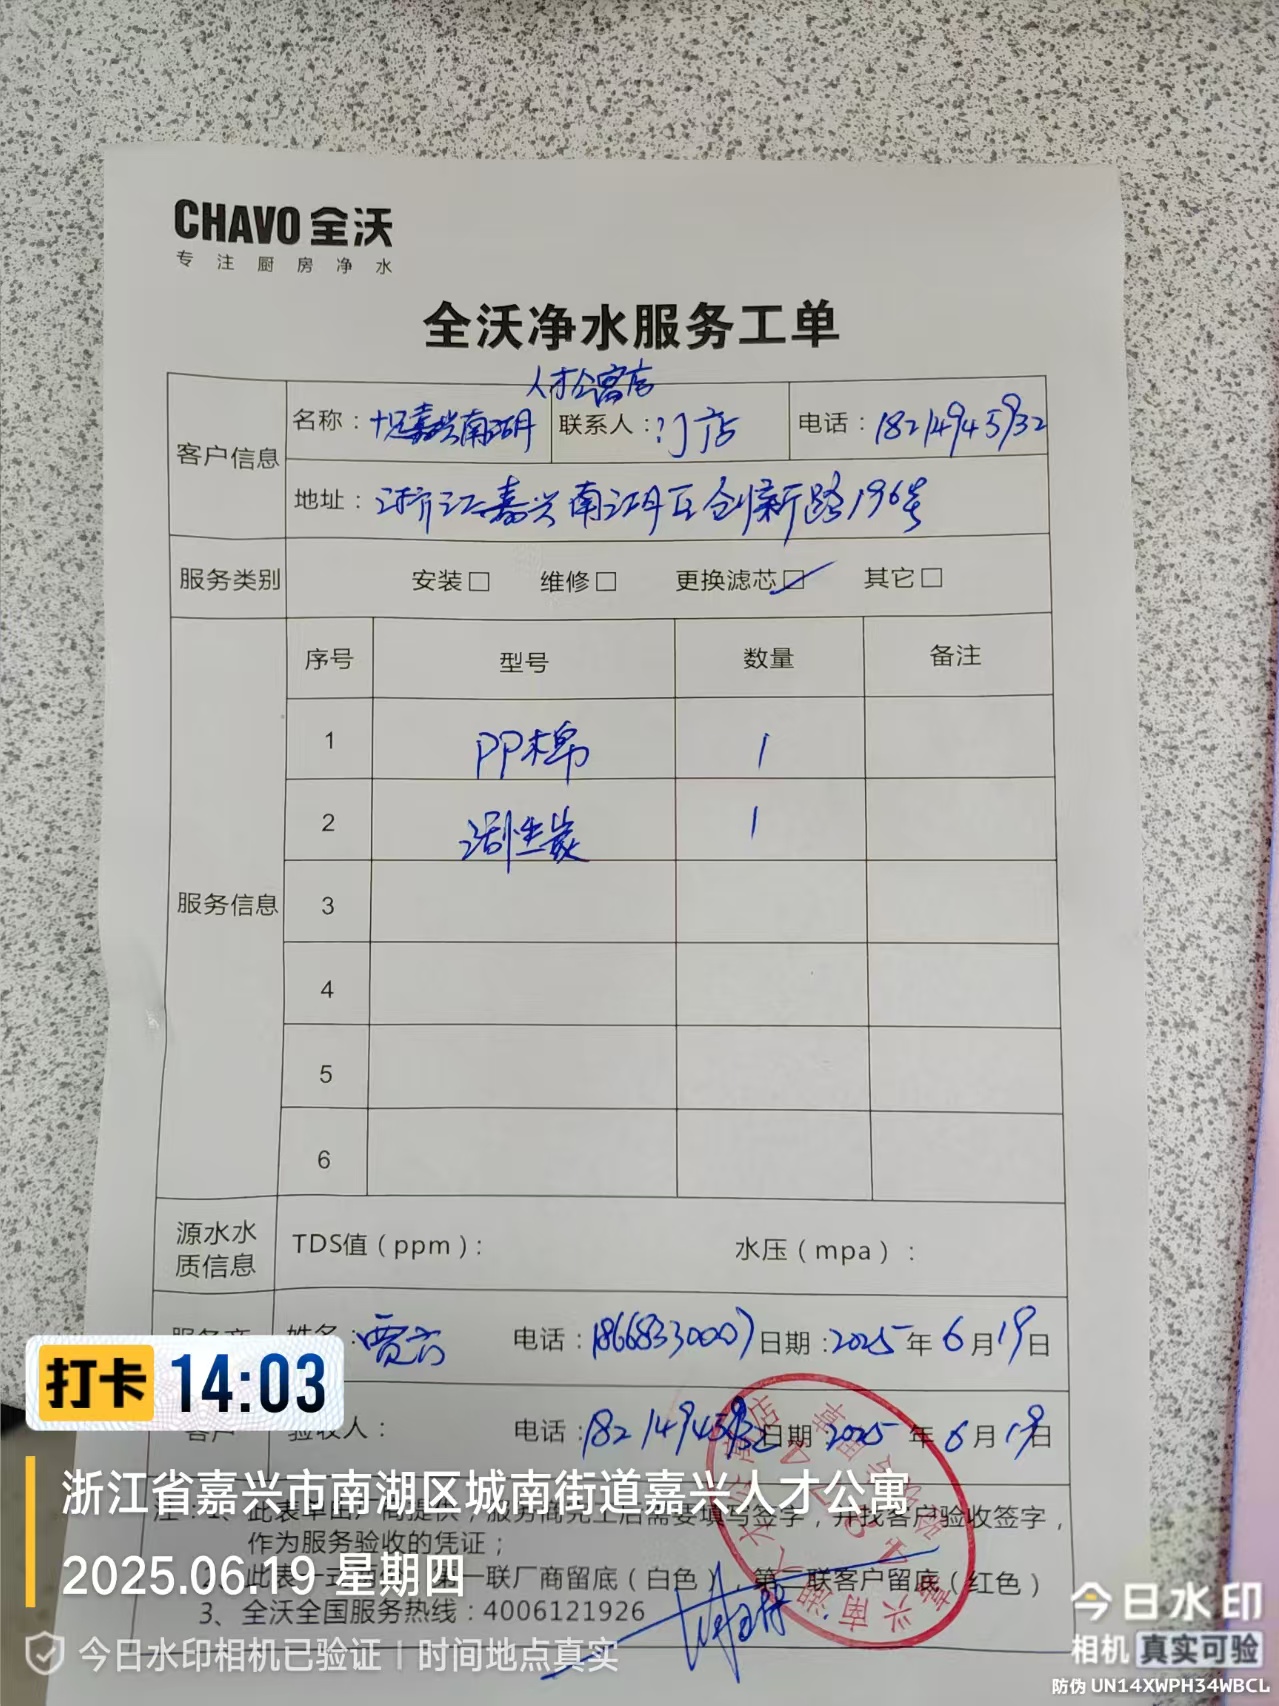 CHAVO 全沃
专注厨房净水
全沃净水服务工单
人才公寓店
客户信息 名称：嘉兴南湖 联系人：门店 电话：18214945932
地址：浙江嘉兴南湖区创新路196号
服务类别 安装□ 维修□ 更换滤芯□✓ 其它□
服务信息 序号 型号 数量 备注
1 PP棉 1
2 活性炭 1
3
4
5
6
源水水质信息 TDS值（ppm）： 水压（mpa）：
服务商 姓名：贾六 电话：18668330007 日期：2025年6月19日
客户 验收人： 电话：18214945932 日期 2025年6月19日
注：1、此表单由厂商提供，服务商完工后需要填写签字，并找客户验收签字，
作为服务验收的凭证；
2、此表一式两联，第一联厂商留底（白色），第二联客户留底（红色）
3、全沃全国服务热线：4006121926
打卡 14:03
浙江省嘉兴市南湖区城南街道嘉兴人才公寓
2025.06.19 星期四
今日水印相机已验证 | 时间地点真实
今日水印
相机 真实可验
防伪 UN14XWPH34WBCL